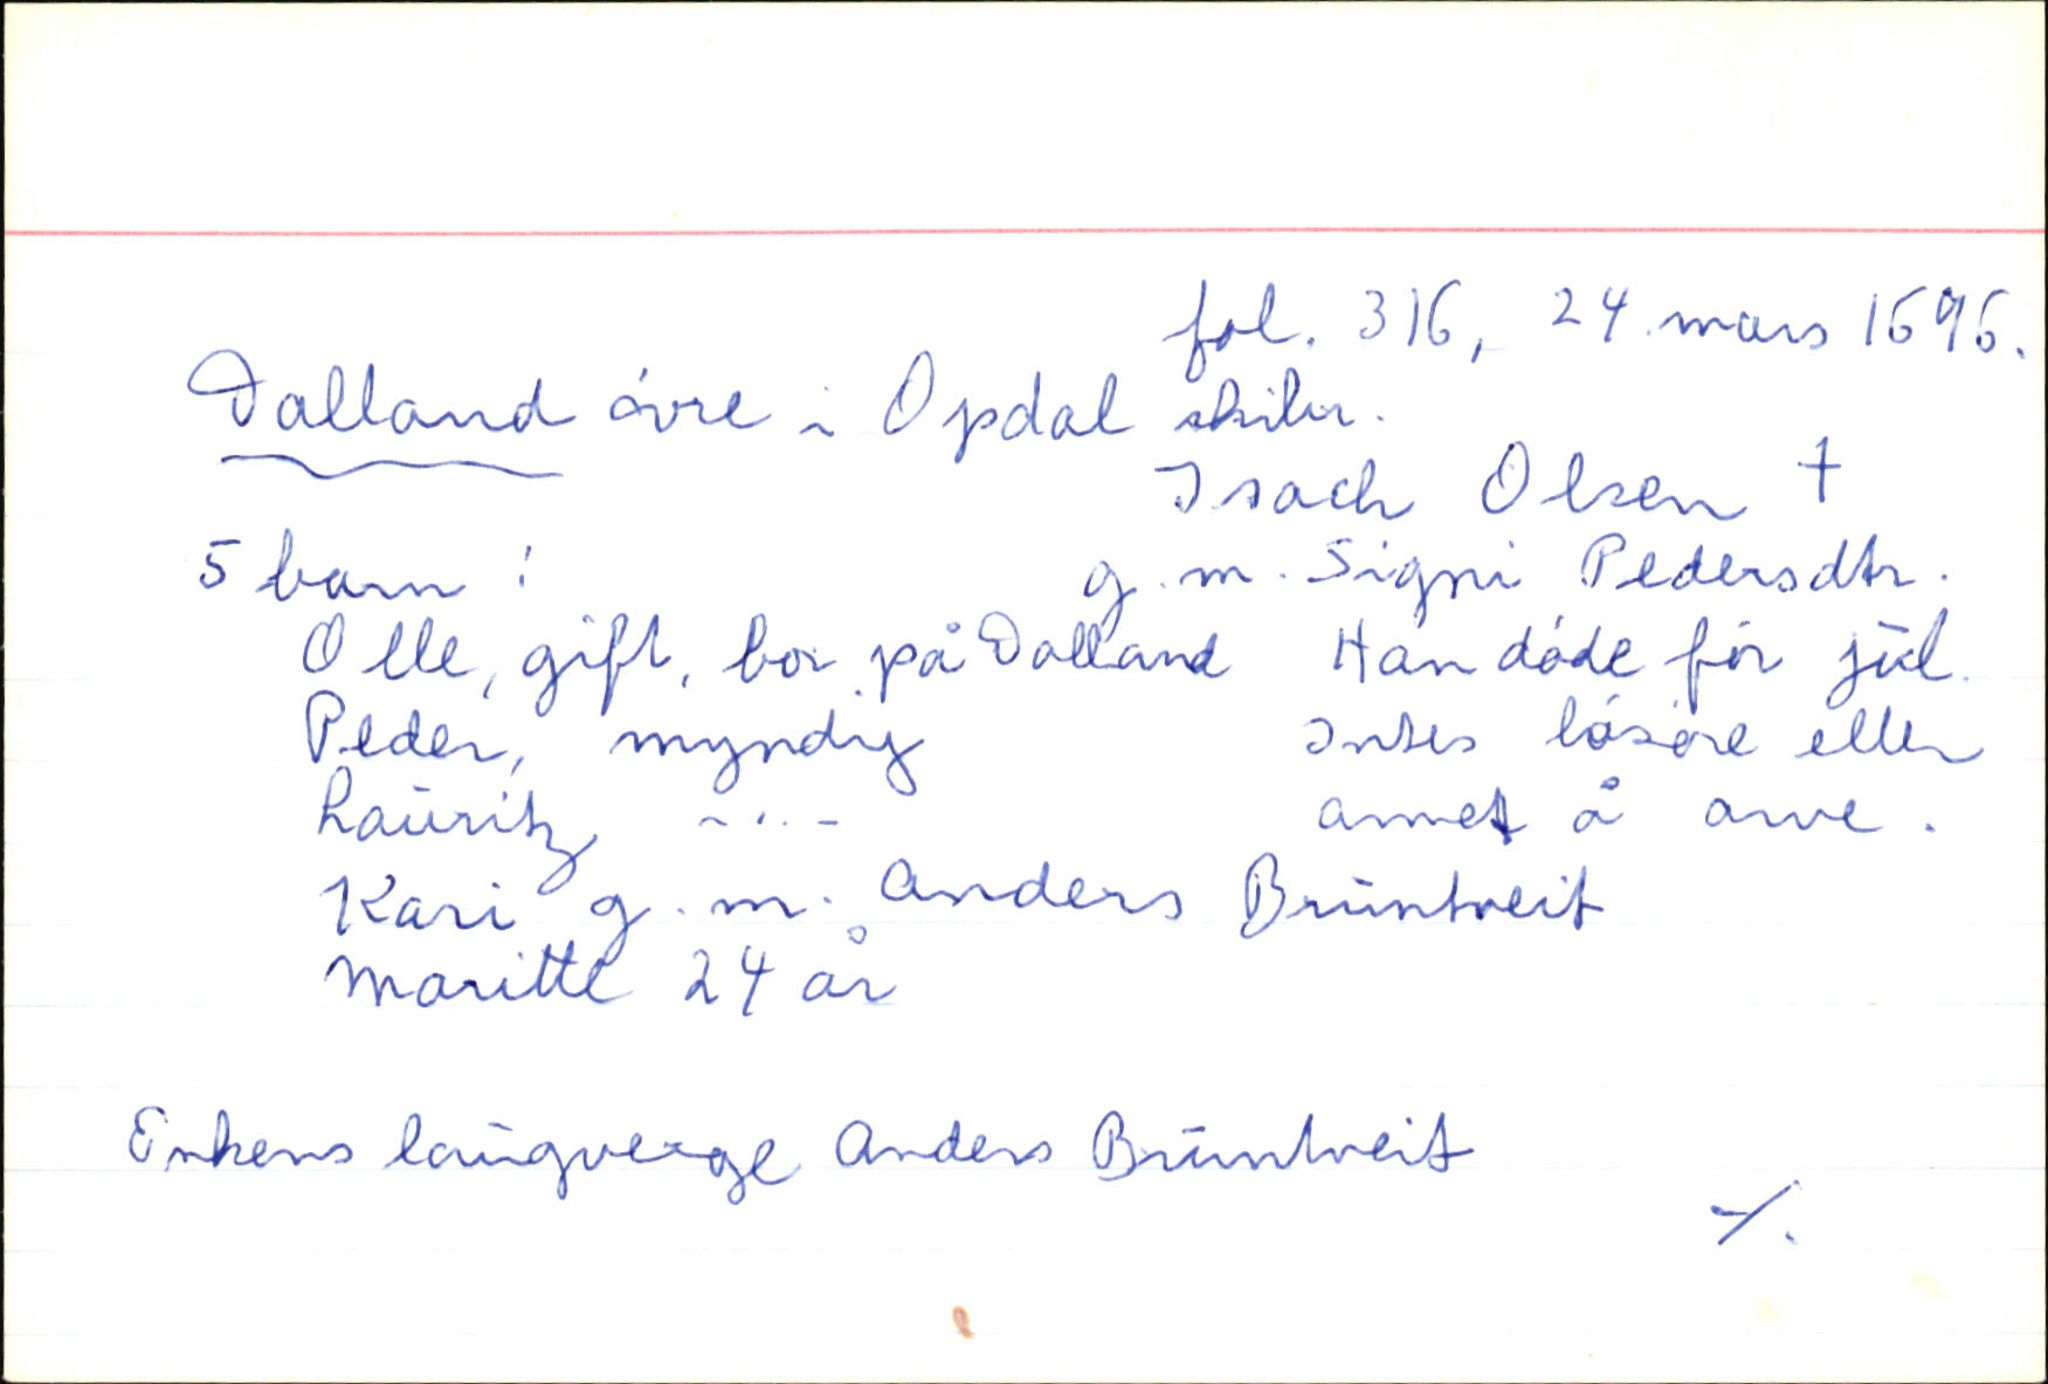 fol. 316, 24. mars 1696.
Dalland övre i Opdal skilr.
Isach Olsen †
5 barn :
g. m. Signi Pedersdtr.
Olle, gift, bor på Dalland
Han döde för jul.
Peder, myndig
Intes lösöre eller
Lauritz -"-
annet å arve.
Kari g. m. Anders Bruntveit
Maritte 24 år
Enkens laugverge Anders Bruntveit
-/.